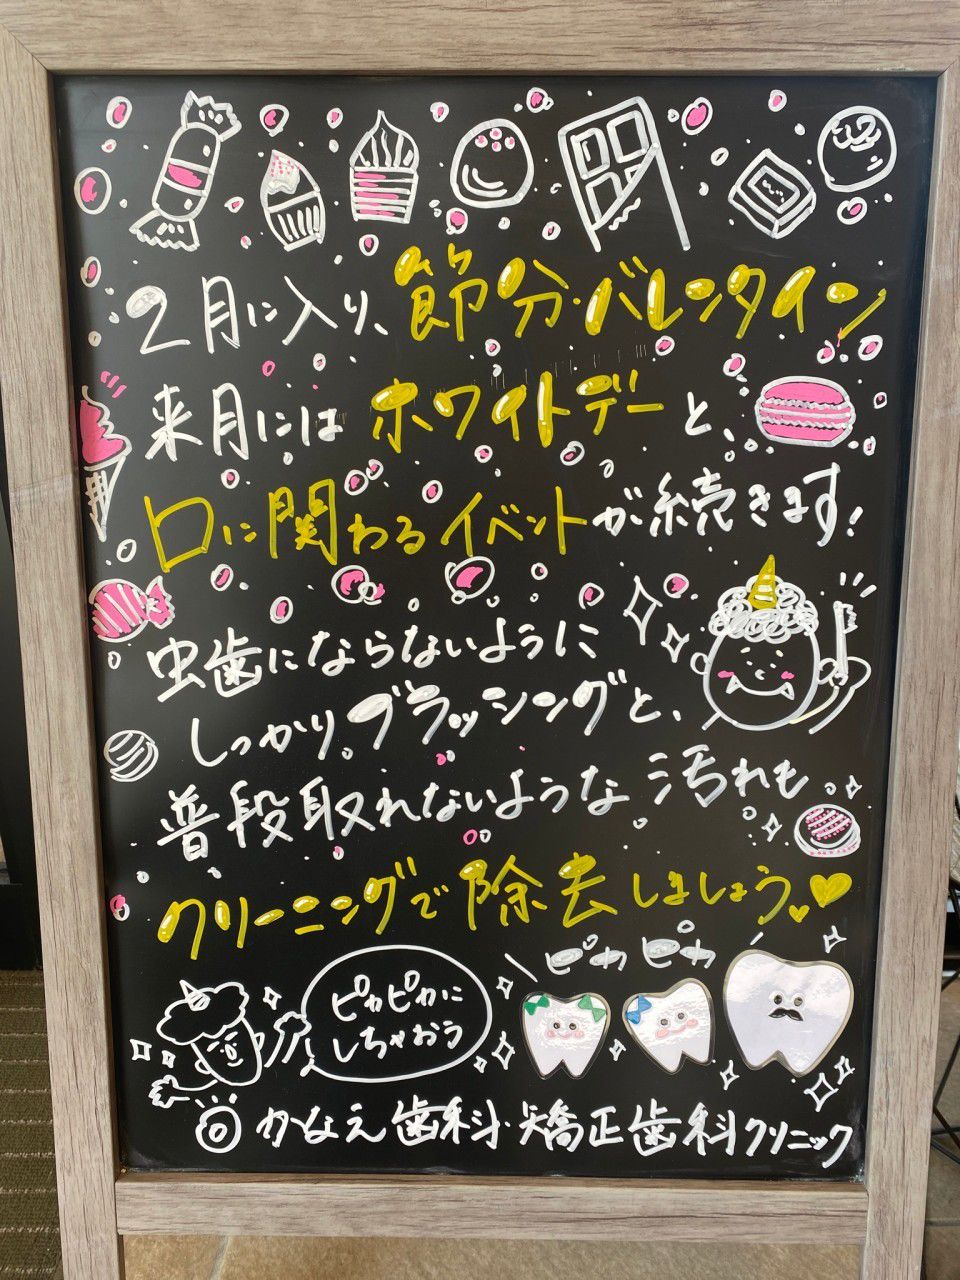 2月に入り、節分・バレンタイン
来月にはホワイトデーと
口に関わるイベントが続きます!
虫歯にならないように
しっかり。ブラッシングと、
普段取れないような汚れも
クリーニングで除去しましょう。
ピカピカ
ピカピカに
しちゃおう
かなえ歯科・矯正歯科クリニック